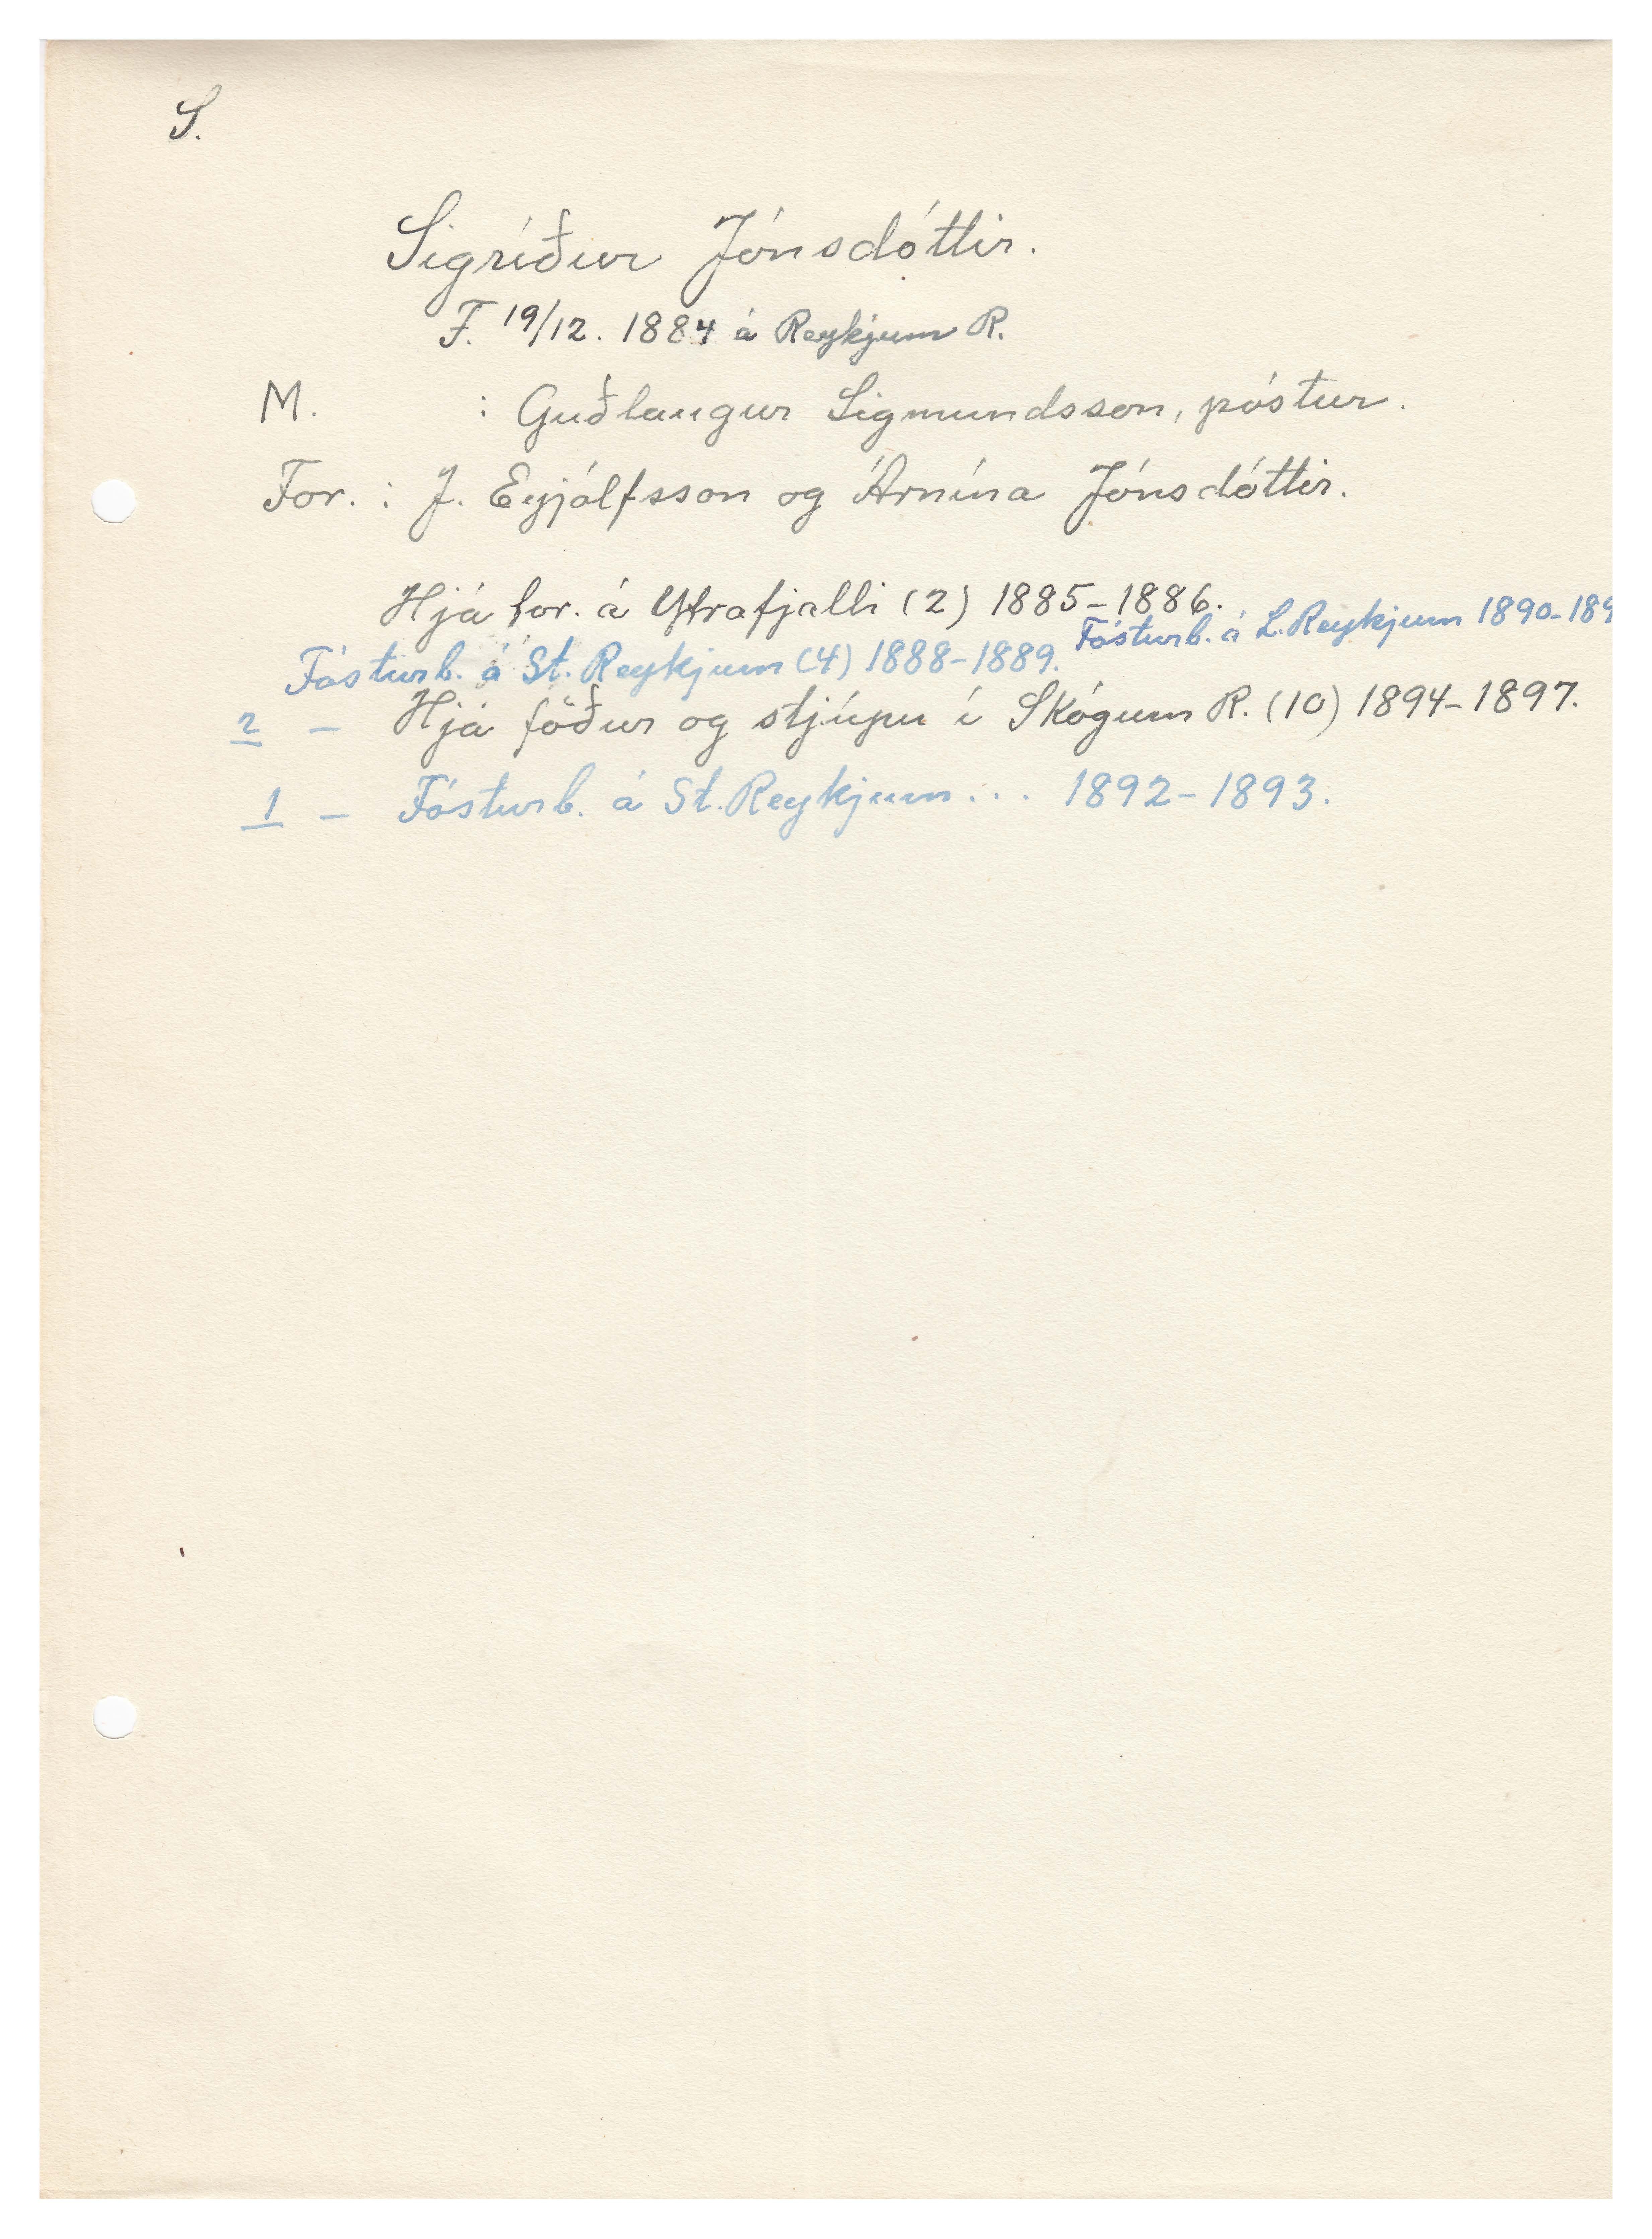 S.
Sigríður Jónsdóttir.
F. 19/12. 1884 á Reykjum R.
M. : Guðlaugur Sigmundsson, póstur.
For. : J. Eyjólfsson og Árnína Jónsdóttir.
Hjá for. á Ytrafjalli (2) 1885-1886.
Fósturb. á St. Reykjum (4) 1888-1889. Fósturb. á L. Reykjum 1890-189
2 - Hjá föður og stjúpu í Skógum R. (10) 1894-1897.
1 - Fósturb. á St. Reykjum ... 1892-1893.